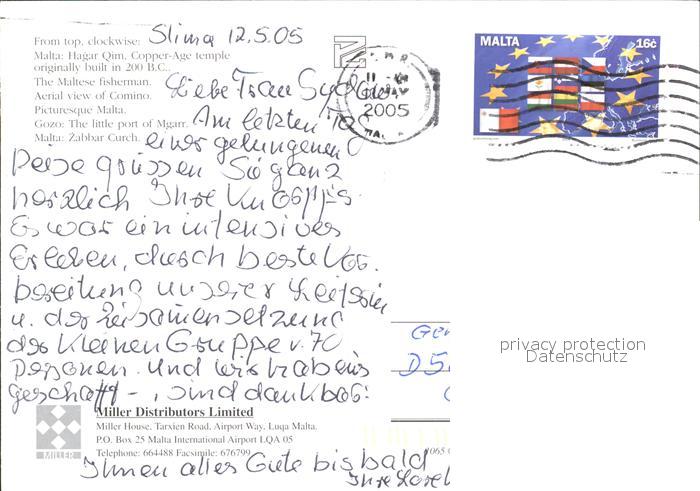 Slima 12.5.05
From top, clockwise:
Malta: Haġar Qim, Copper-Age temple
originally built in 200 B.C.
The Maltese fisherman.
Aerial view of Comino.
Picturesque Malta.
Gozo: The little port of Mġarr.
Malta: Żabbar Curch.
MALTA 16c
2005
Liebe Frau
Am letzten Tag
einer gelungenen
Reise grüssen Sie ganz
herzlich Ihre
Es war ein intensives
Erleben, durch beste Vor-
bereitung unserer Leiterin
u. der Zusammensetzung
der kleinen Gruppe v. 10
Personen. Und wir haben's
geschafft -, sind dankbar!
privacy protection
Datenschutz
D 5
Miller Distributors Limited
Miller House, Tarxien Road, Airport Way, Luqa Malta.
P.O. Box 25 Malta International Airport LQA 05
Telephone: 664488 Facsimile: 676799
MILLER
Ihnen alles Gute bis bald
Ihre